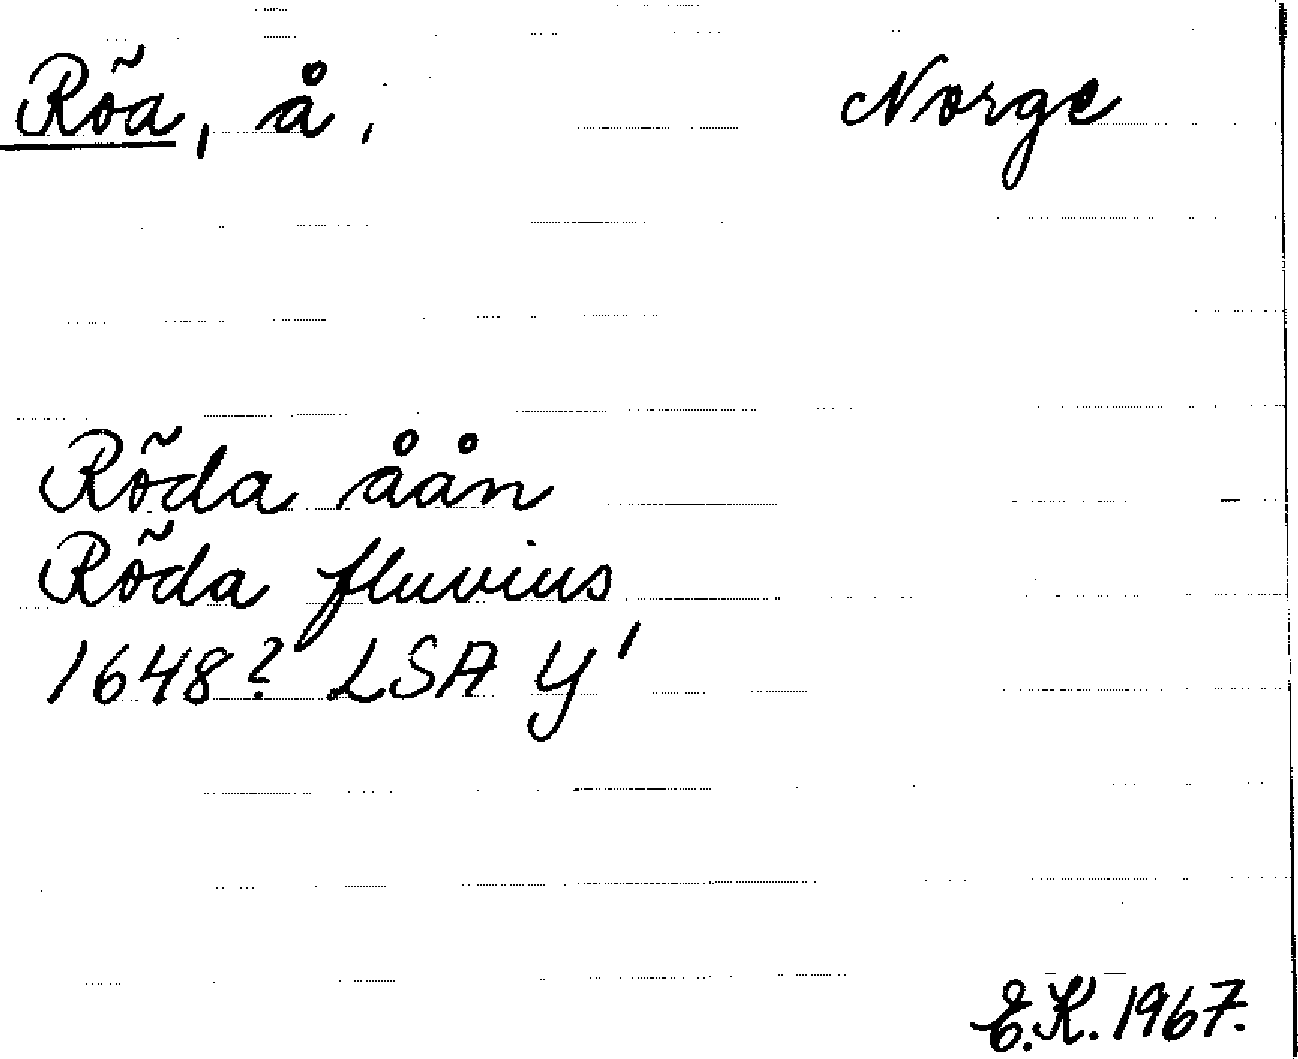 Rõa, å, Norge
Rõda åån
Rõda fluvius
1648? LSA Y'
E.K. 1967.